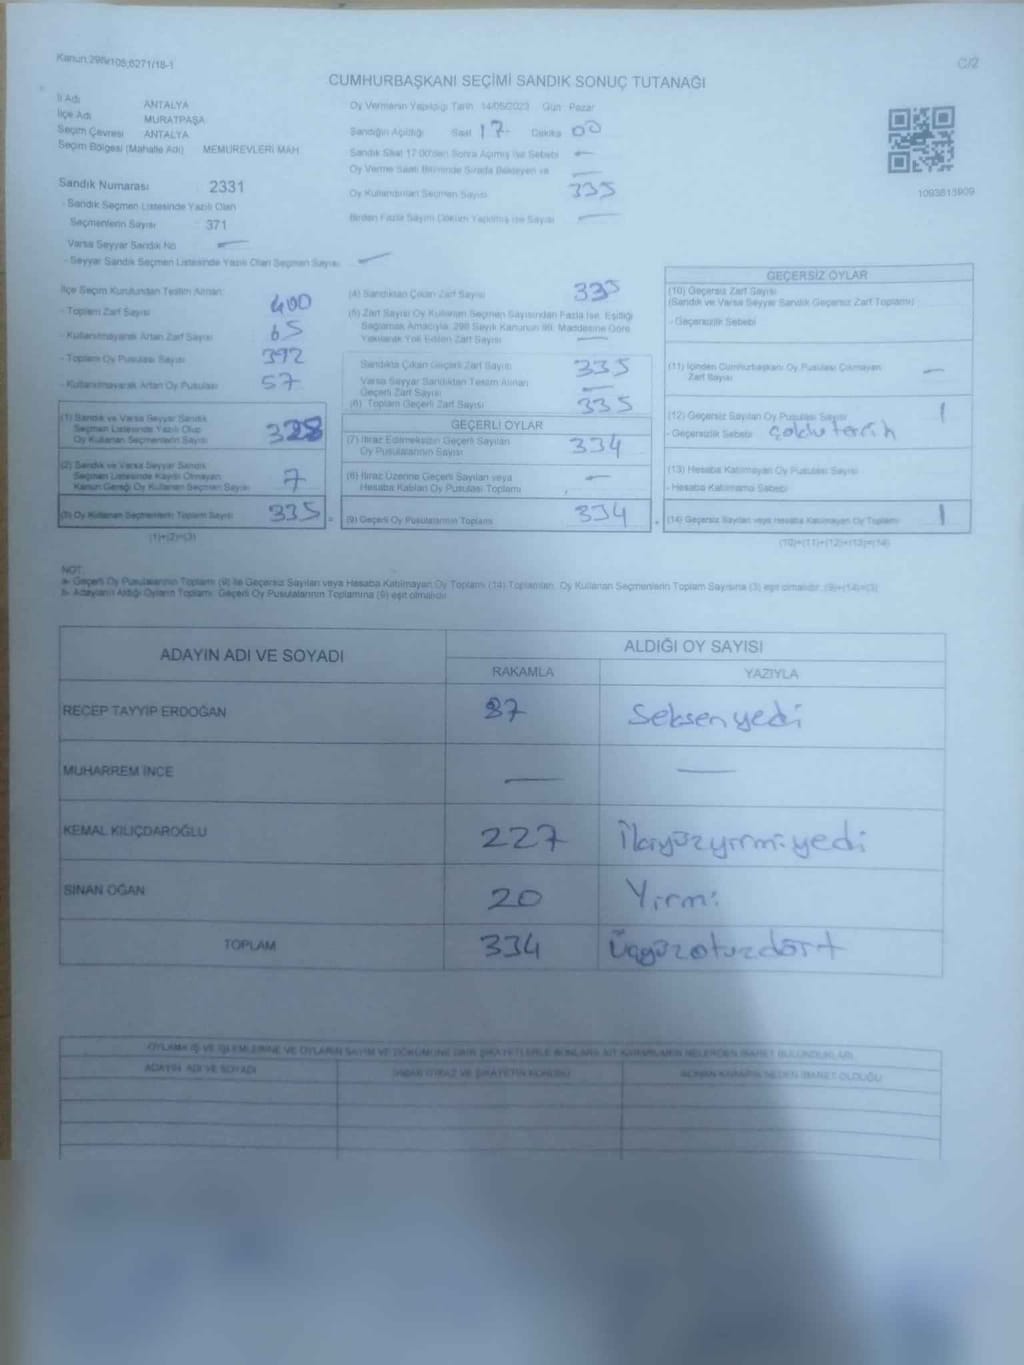 Kanun:298/e108;6271/18-1
C/2
CUMHURBAŞKANI SEÇİMİ SANDIK SONUÇ TUTANAĞI
İl Adı ANTALYA
İlçe Adı MURATPAŞA
Seçim Çevresi ANTALYA
Seçim Bölgesi (Mahalle Adı) MEMUREVLERİ MAH.
Sandık Numarası 2331
- Sandık Seçmen Listesinde Yazılı Olan
Seçmenlerin Sayısı 371
Varsa Seyyar Sandık No —
- Seyyar Sandık Seçmen Listesinde Yazılı Olan Seçmen Sayısı —
Oy Vermenin Yapıldığı Tarih 14/05/2023 Gün Pazar
Sandığın Açıldığı Saat 17 Dakika 00
Sandık Saat 17:00'den Sonra Açılmış ise Sebebi —
Oy Verme Saati Bitiminde Sırada Bekleyen ve
Oy Kullandırılan Seçmen Sayısı 335
Birden Fazla Sayım Döküm Yapılmış ise Sayısı —
1093813909
İlçe Seçim Kurulundan Teslim Alınan:
- Toplam Zarf Sayısı 400
- Kullanılmayarak Artan Zarf Sayısı 65
- Toplam Oy Pusulası Sayısı 392
- Kullanılmayarak Artan Oy Pusulası 57
(1) Sandık ve Varsa Seyyar Sandık
Seçmen Listesinde Yazılı Olup
Oy Kullanan Seçmenlerin Sayısı 328
(2) Sandık ve Varsa Seyyar Sandık
Seçmen Listesinde Kaydı Olmayan
Kanun Gereği Oy Kullanan Seçmen Sayısı 7
(3) Oy Kullanan Seçmenlerin Toplam Sayısı 335
(1)+(2)=(3)
(4) Sandıktan Çıkan Zarf Sayısı 335
(5) Zarf Sayısı Oy Kullanan Seçmen Sayısından Fazla ise, Eşitliği
Sağlamak Amacıyla, 298 Sayılı Kanunun 98. Maddesine Göre
Yakılarak Yok Edilen Zarf Sayısı —
Sandıkta Çıkan Geçerli Zarf Sayısı 335
Varsa Seyyar Sandıktan Teslim Alınan
Geçerli Zarf Sayısı —
(6) Toplam Geçerli Zarf Sayısı 335
GEÇERLİ OYLAR
(7) İtiraz Edilmeksizin Geçerli Sayılan
Oy Pusulalarının Sayısı 334
(8) İtiraz Üzerine Geçerli Sayılan veya
Hesaba Katılan Oy Pusulası Toplamı —
(9) Geçerli Oy Pusulalarının Toplamı 334
GEÇERSİZ OYLAR
(10) Geçersiz Zarf Sayısı
(Sandık ve Varsa Seyyar Sandık Geçersiz Zarf Toplamı)
- Geçersizlik Sebebi
(11) İçinden Cumhurbaşkanı Oy Pusulası Çıkmayan
Zarf Sayısı —
(12) Geçersiz Sayılan Oy Pusulası Sayısı 1
- Geçersizlik Sebebi
(13) Hesaba Katılmayan Oy Pusulası Sayısı
- Hesaba Katılmama Sebebi
(14) Geçersiz Sayılan veya Hesaba Katılmayan Oy Toplamı 1
(10)+(11)+(12)+(13)=(14)
NOT:
a- Geçerli Oy Pusulalarının Toplamı (9) ile Geçersiz Sayılan veya Hesaba Katılmayan Oy Toplamı (14) Toplamları, Oy Kullanan Seçmenlerin Toplam Sayısına (3) eşit olmalıdır. (9)+(14)=(3)
b- Adayların Aldığı Oyların Toplamı, Geçerli Oy Pusulalarının Toplamına (9) eşit olmalıdır.
ADAYIN ADI VE SOYADI ALDIĞI OY SAYISI
RAKAMLA YAZIYLA
RECEP TAYYİP ERDOĞAN 87 Seksenyedi
MUHARREM İNCE — —
KEMAL KILIÇDAROĞLU 227 İkiyüzyirmiyedi
SİNAN OĞAN 20 Yirmi
TOPLAM 334 Üçyüzotuzdört
OYLAMA İŞ VE İŞLEMLERİNE VE OYLARIN SAYIM VE DÖKÜMÜNE DAİR ŞİKAYETLERLE BUNLARA AİT KARARLARIN NELERDEN İBARET BULUNDUKLARI
ADAYIN ADI VE SOYADI
ALINAN KARARIN NEDEN İBARET OLDUĞU